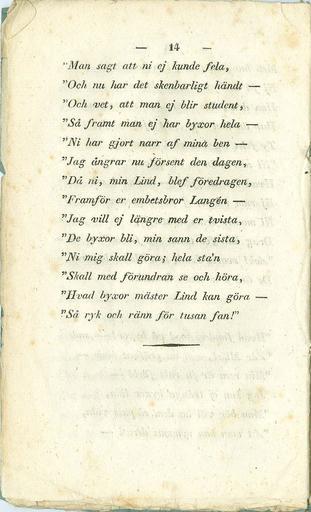 — 14 —
"Man sagt att ni ej kunde fela,
"Och nu har det skenbarligt händt —
"Och vet, att man ej blir student,
"Så framt man ej har byxor hela —
"Ni har gjort narr af mina ben —
"Jag ångrar nu försent den dagen,
"Då ni, min Lind, blef föredragen,
"Framför er embetsbror Langén —
"Jag vill ej längre med er tvista,
"De byxor bli, min sann de sista,
"Ni mig skall göra; hela sta'n
"Skall med förundran se och höra,
"Hvad byxor mäster Lind kan göra —
"Så ryk och ränn för tusan fan!"